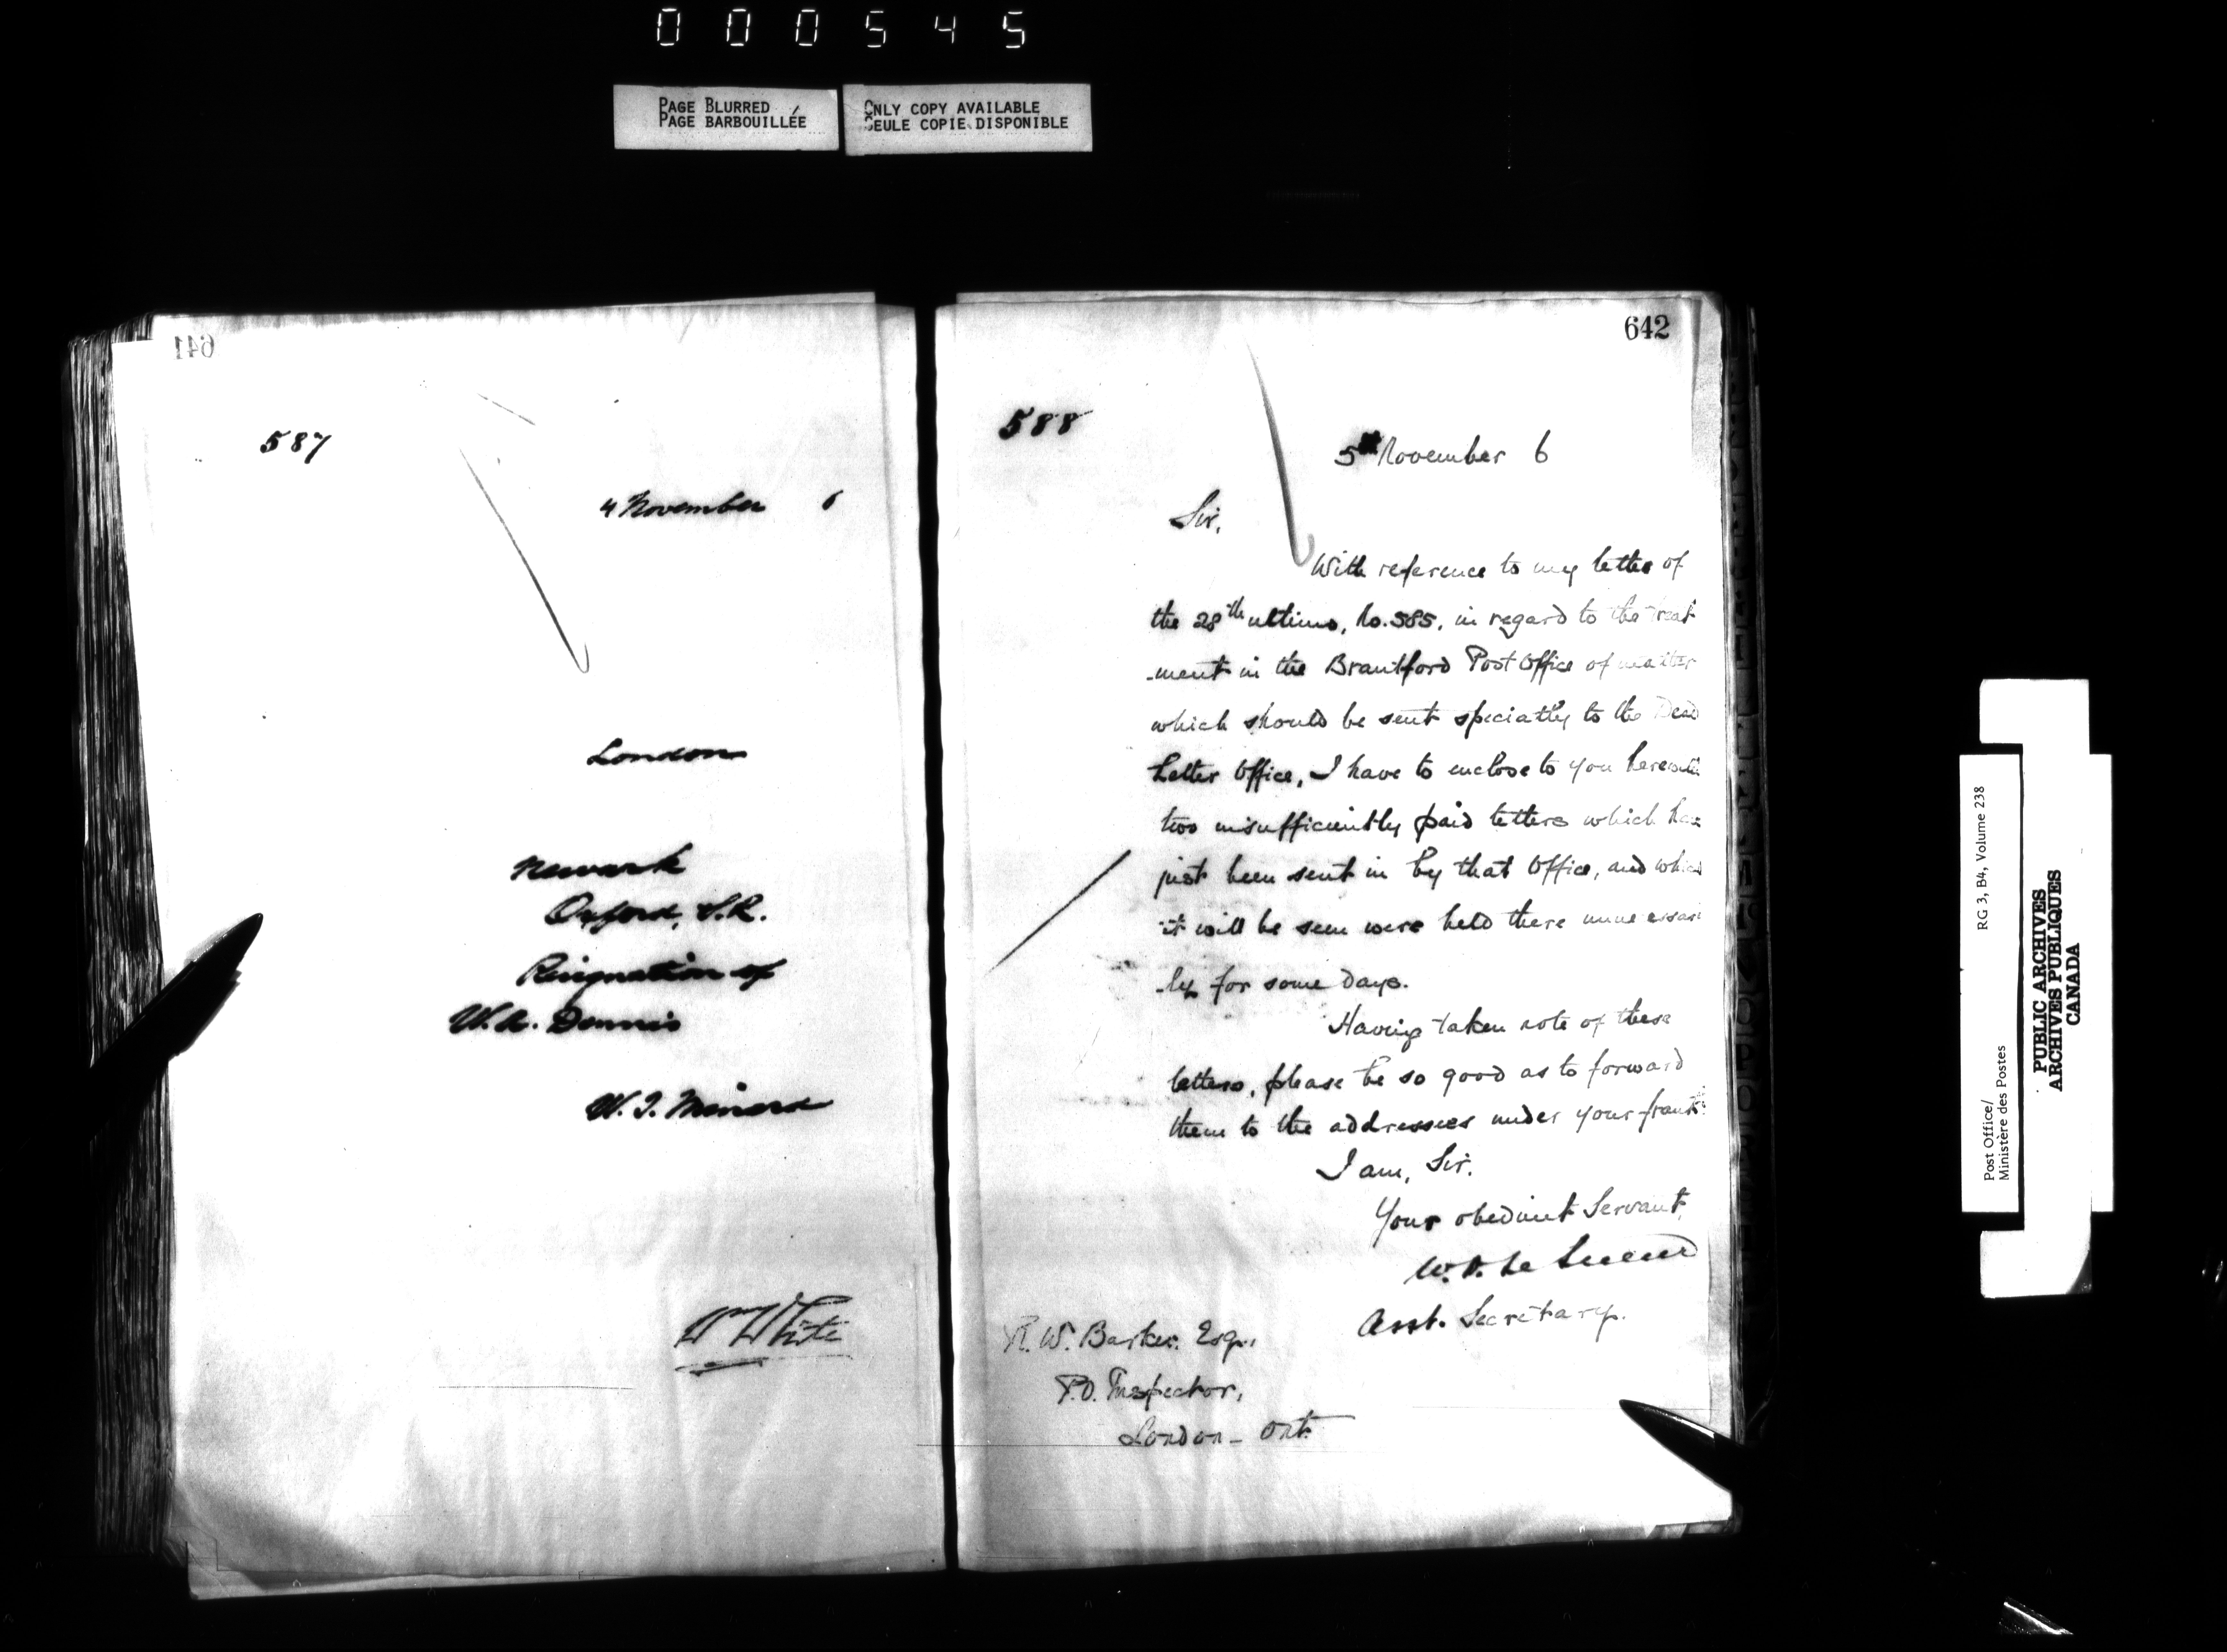 000545
PAGE BLURRED
PAGE BARBOUILLÉE
ONLY COPY AVAILABLE
SEULE COPIE DISPONIBLE
641
587
4 November 6
London
Newark
Oxford, S.R.
Resignation of
W. R. Dennis
W. J. Minord
Wm White
642
588
5th November 6
Sir,
With reference to my letter of
the 28th ultimo, No. 585, in regard to the treat
-ment in the Brantford Post Office of matter
which should be sent specially to the Dead
Letter Office, I have to enclose to you herewith
two insufficiently paid letters which have
just been sent in by that Office, and which
it will be seen were held there unnecessari
-ly for some days.
Having taken note of these
letters, please be so good as to forward
them to the addressees under your frank.
I am, Sir,
Your obedient Servant,
W. D. Le Sueur
Asst. Secretary.
R. W. Barker, Esq.,
P.O. Inspector,
London - Ont.
RG 3, B4, Volume 238
Post Office/
Ministère des Postes
PUBLIC ARCHIVES
ARCHIVES PUBLIQUES
CANADA